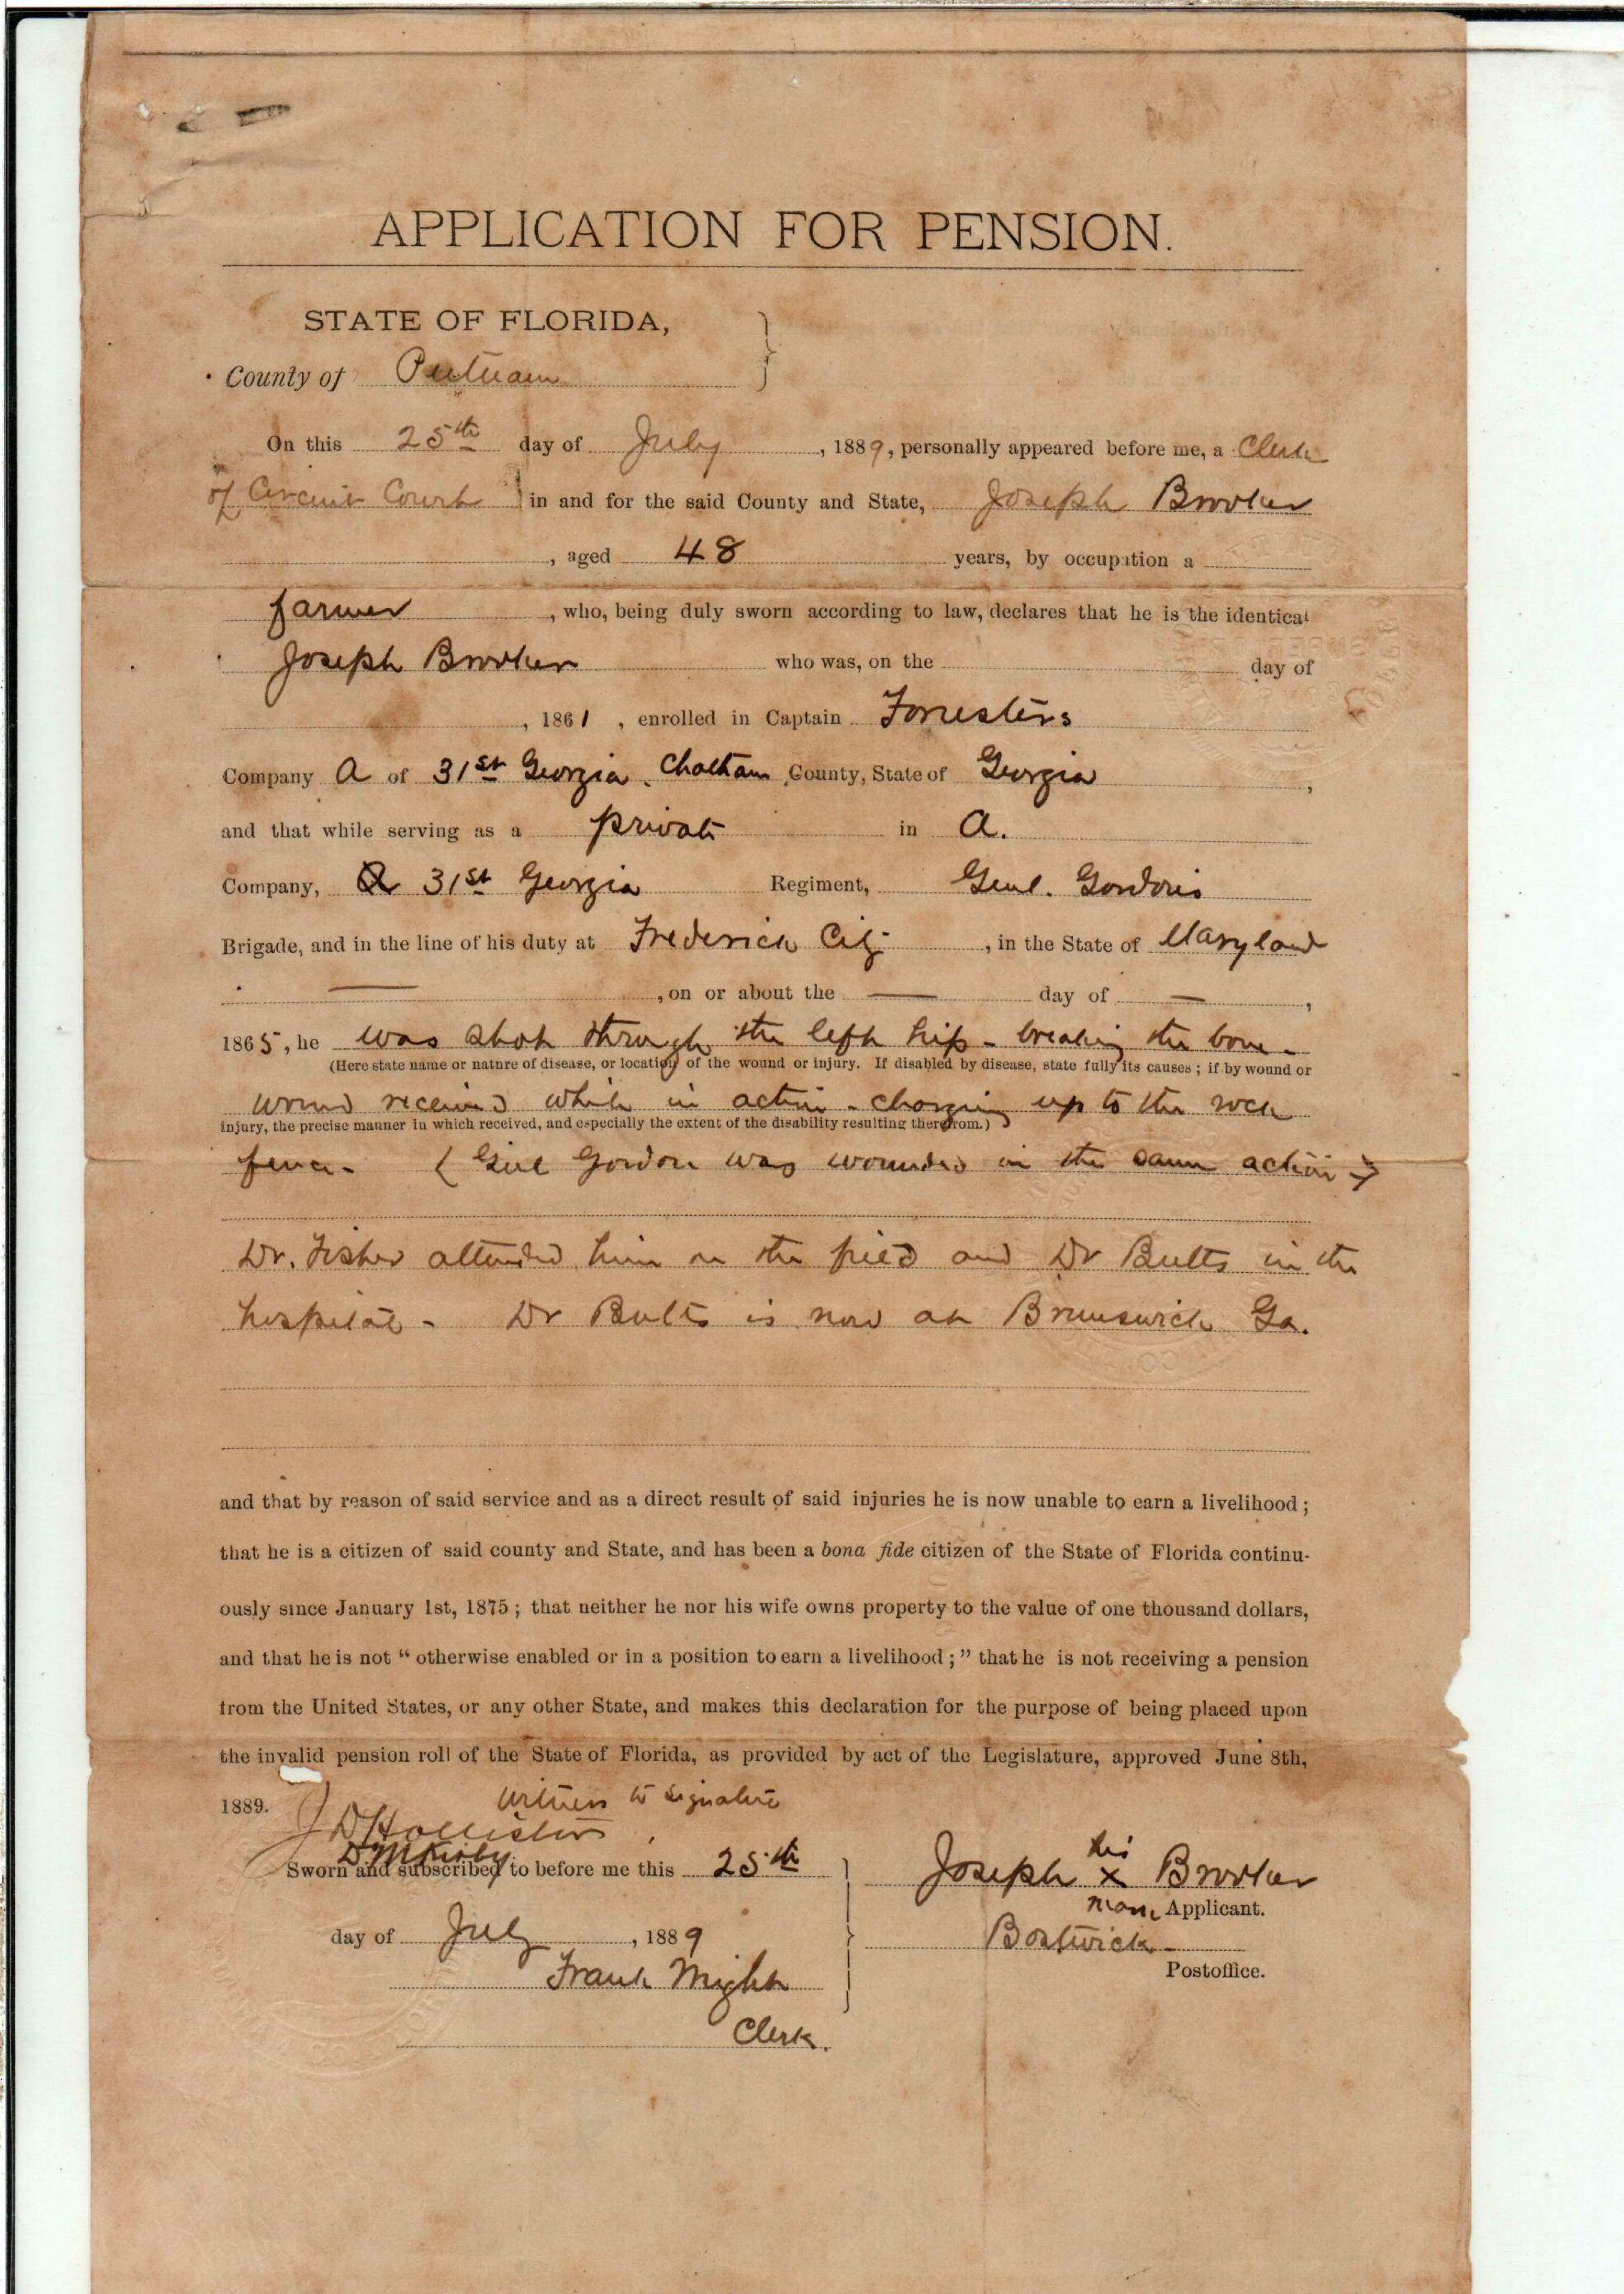 APPLICATION FOR PENSION.
STATE OF FLORIDA,
County of Putnam
On this 25th day of July, 1889, personally appeared before me, a Clerk
of Circuit Court in and for the said County and State, Joseph Brooker
, aged 48 years, by occupation a
farmer, who, being duly sworn according to law, declares that he is the identical
Joseph Brooker who was, on the day of
, 1861, enrolled in Captain Forresters
Company A of 31st Georgia, Chatham County, State of Georgia,
and that while serving as a private in A.
Company, 31st Georgia Regiment, Genl. Gordon's
Brigade, and in the line of his duty at Frederick City, in the State of Maryland
—, on or about the — day of —,
1865, he was shot through the left hip - breaking the bone -
(Here state name or nature of disease, or location of the wound or injury. If disabled by disease, state fully its causes; if by wound or
wound received while in action - charging up to the rock
injury, the precise manner in which received, and especially the extent of the disability resulting therefrom.)
fence - (Genl Gordon was wounded in the same action)
Dr. Fisher attended him on the field and Dr Butts in the
hospital - Dr Butts is now at Brunswick Ga.
and that by reason of said service and as a direct result of said injuries he is now unable to earn a livelihood;
that he is a citizen of said county and State, and has been a bona fide citizen of the State of Florida continu-
ously since January 1st, 1875; that neither he nor his wife owns property to the value of one thousand dollars,
and that he is not "otherwise enabled or in a position to earn a livelihood;" that he is not receiving a pension
from the United States, or any other State, and makes this declaration for the purpose of being placed upon
the invalid pension roll of the State of Florida, as provided by act of the Legislature, approved June 8th,
1889. Witness to signature
J D Hollister
D M Kirby
Sworn and subscribed to before me this 25th
day of July, 1889
Frank
Clerk.
his
Joseph x Brooker
mark Applicant.
Bostwick
Postoffice.